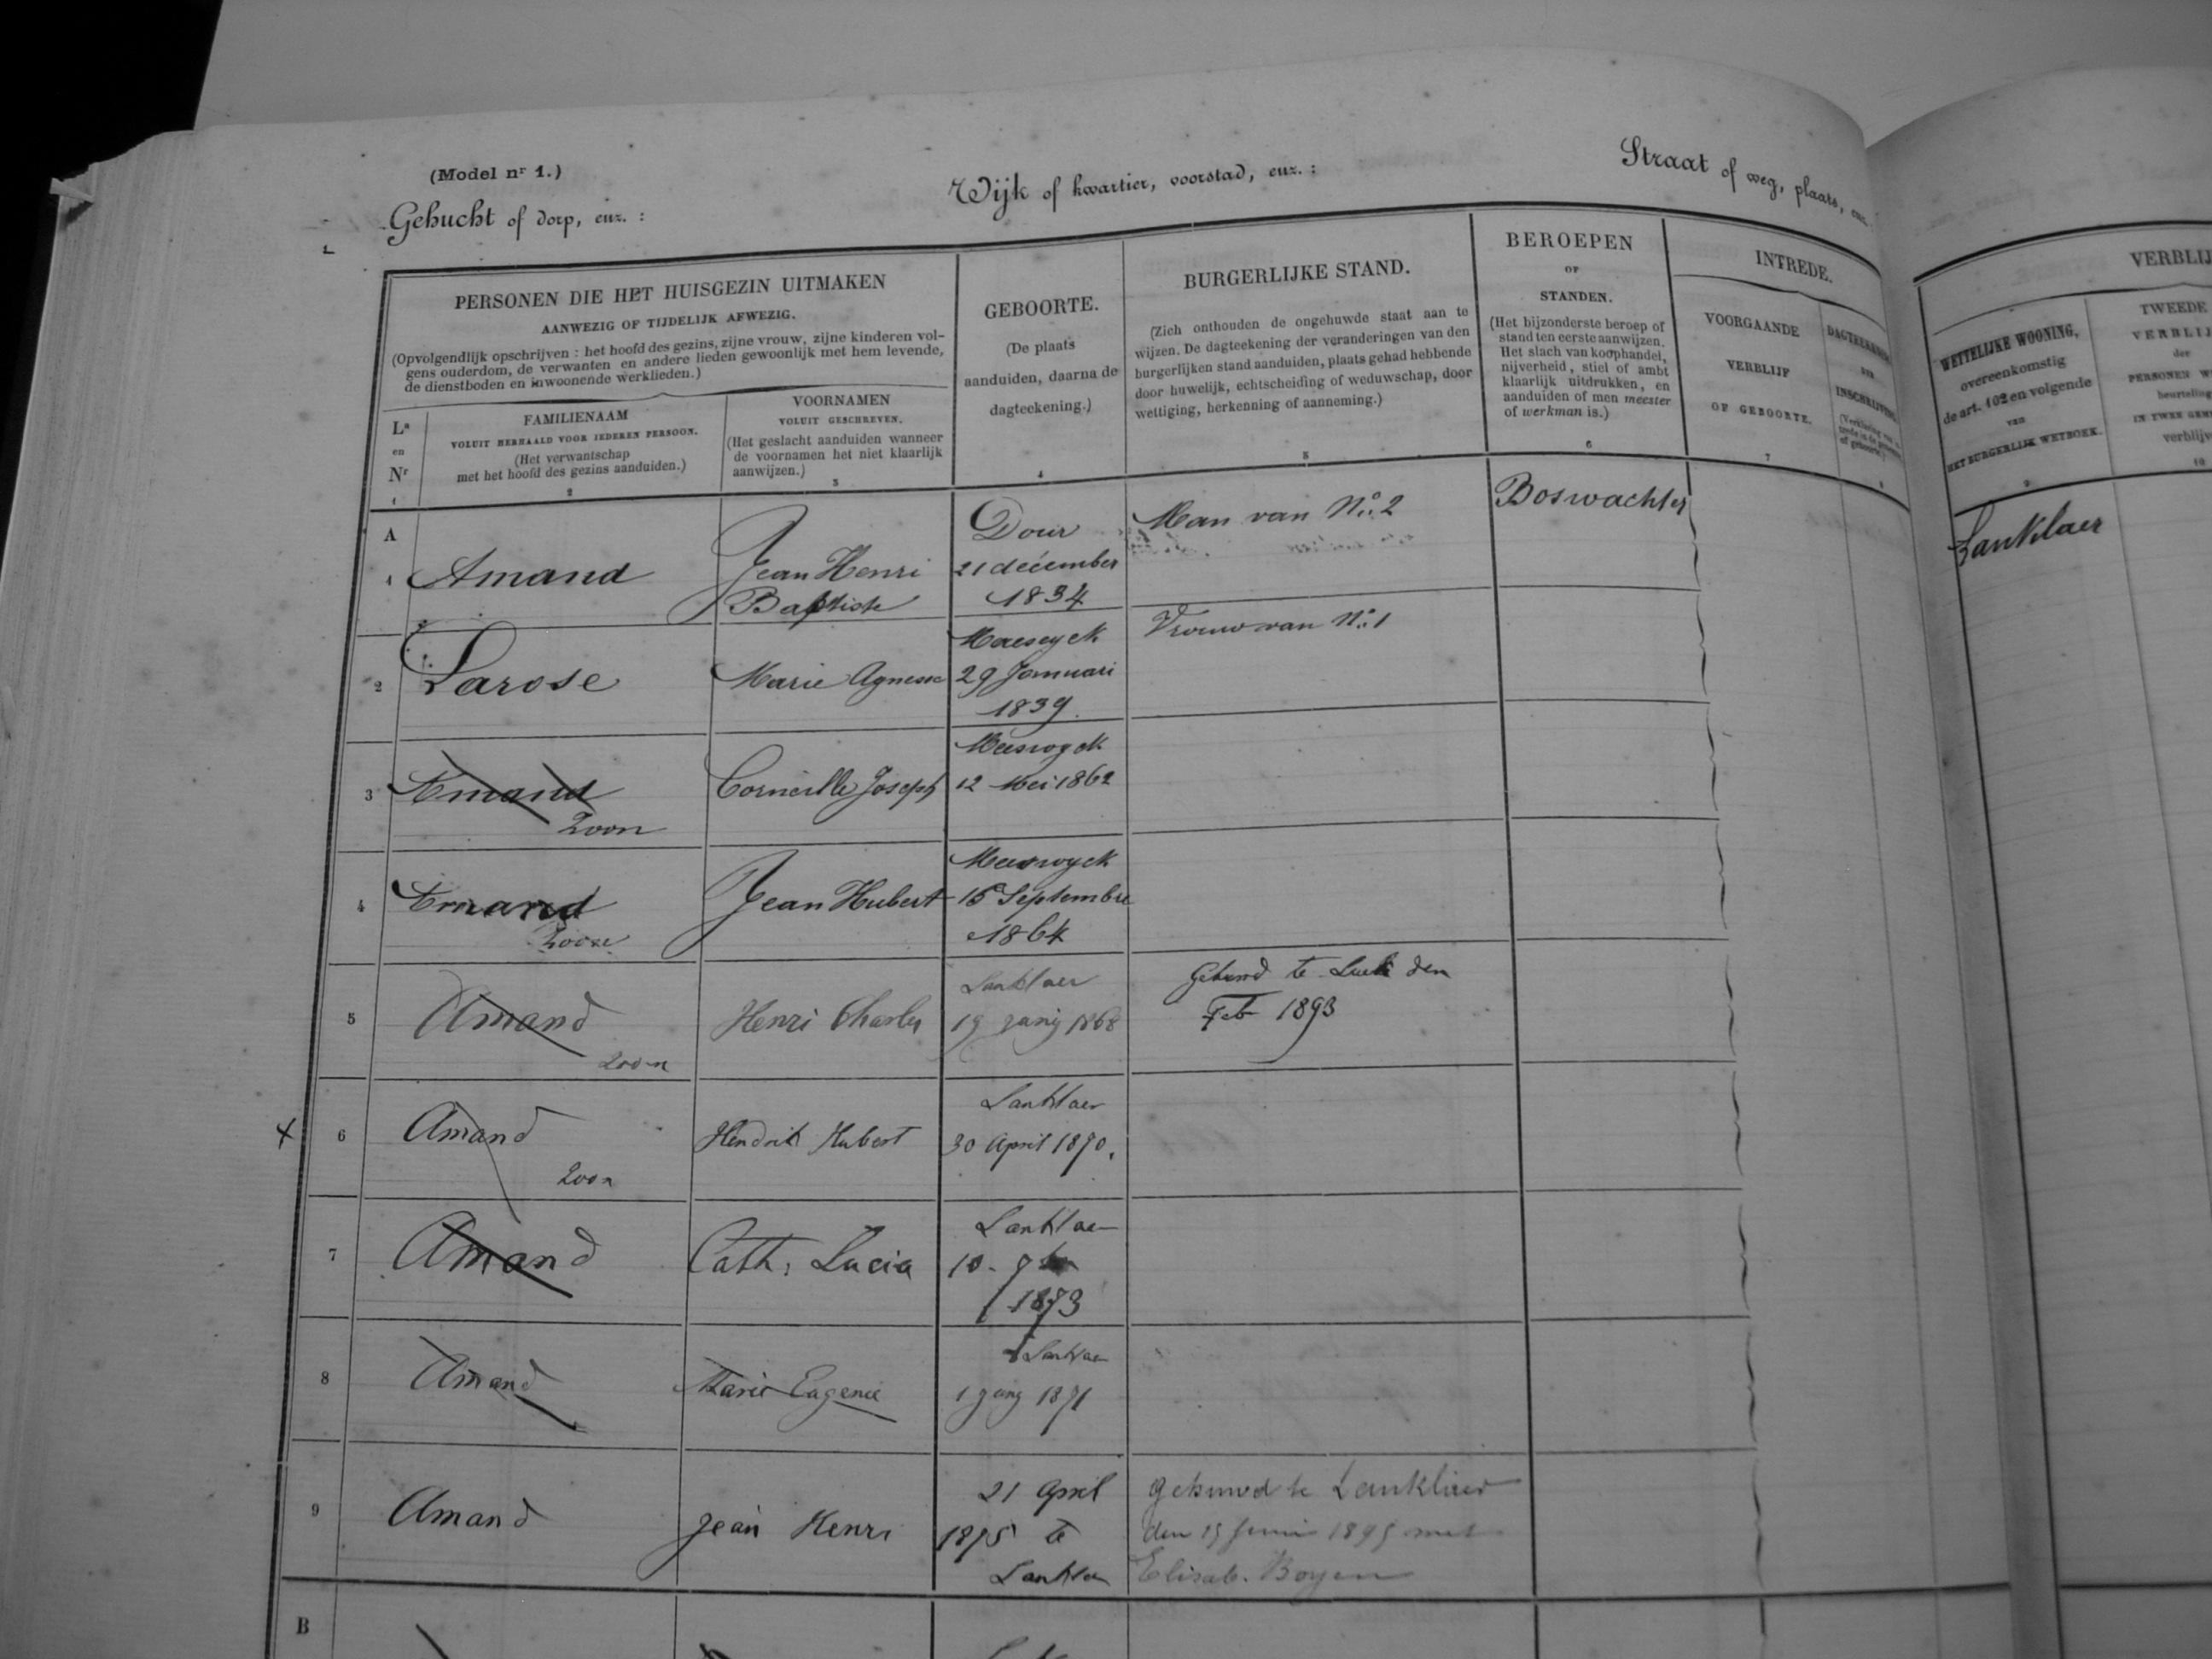 (Model nr 1.)
Gehucht of dorp, enz. :
Wijk of kwartier, voorstad, enz. :
Straat of weg, plaats, enz.
PERSONEN DIE HET HUISGEZIN UITMAKEN
AANWEZIG OF TIJDELIJK AFWEZIG.
(Opvolgendlijk opschrijven : het hoofd des gezins, zijne vrouw, zijne kinderen vol-
gens ouderdom, de verwanten en andere lieden gewoonlijk met hem levende,
de dienstboden en inwoonende werklieden.)
La
en
Nr
1
FAMILIENAAM
VOLUIT HERHAALD VOOR IEDEREN PERSOON.
(Het verwantschap
met het hoofd des gezins aanduiden.)
2
VOORNAMEN
VOLUIT GESCHREVEN.
(Het geslacht aanduiden wanneer
de voornamen het niet klaarlijk
aanwijzen.)
3
GEBOORTE.
(De plaats
aanduiden, daarna de
dagteekening.)
4
BURGERLIJKE STAND.
(Zich onthouden de ongehuwde staat aan te
wijzen. De dagteekening der veranderingen van den
burgerlijken stand aanduiden, plaats gehad hebbende
door huwelijk, echtscheiding of weduwschap, door
wettiging, herkenning of aanneming.)
5
BEROEPEN
OF
STANDEN.
(Het bijzonderste beroep of
stand ten eerste aanwijzen.
Het slach van koophandel,
nijverheid, stiel of ambt
klaarlijk uitdrukken, en
aanduiden of men meester
of werkman is.)
6
INTREDE.
VOORGAANDE
VERBLIJF
OF GEBOORTE.
7
DAGTEEKENING
DER
INSCHRIJVING
8
VERBLIJ
WETTELIJKE WOONING,
overeenkomstig
de art. 102 en volgende
van
HET BURGERLIJK WETBOEK.
9
TWEEDE
VERBLIJ
der
PERSONEN W
beurteling
IN TWEE GEM
verblijv
10
A
1 Amand
Jean Henri
Baptiste
Dour
21 décember
1834
Man van N° 2
Boswachter
Lanklaer
2 Larose
Marie Agnesse
Maeseyck
29 Januari
1839
Vrouw van N° 1
3 Amand
Zoon
Corneille Joseph
Meeswyck
12 Mei 1862
4 Amand
Zoon
Jean Hubert
Meeswyck
15 Septembre
1864
5 Amand
Zoon
Henri Charles
Lanklaer
19 Junij 1868
Gehuwd te Luik den
Feb 1893
6 Amand
Zoon
Hendrik Hubert
Lanklaer
30 April 1870.
7 Amand
Cath. Lucia
Lanklaer
10
1873
8 Amand
Marie Eugenie
Lanklaer
1 Junij 1871
9 Amand
Jean Henri
21 April
1875 te
Lanklaer
gehuwd te Lanklaer
den 15 Juni 1895 met
Elisab. Boyen
B